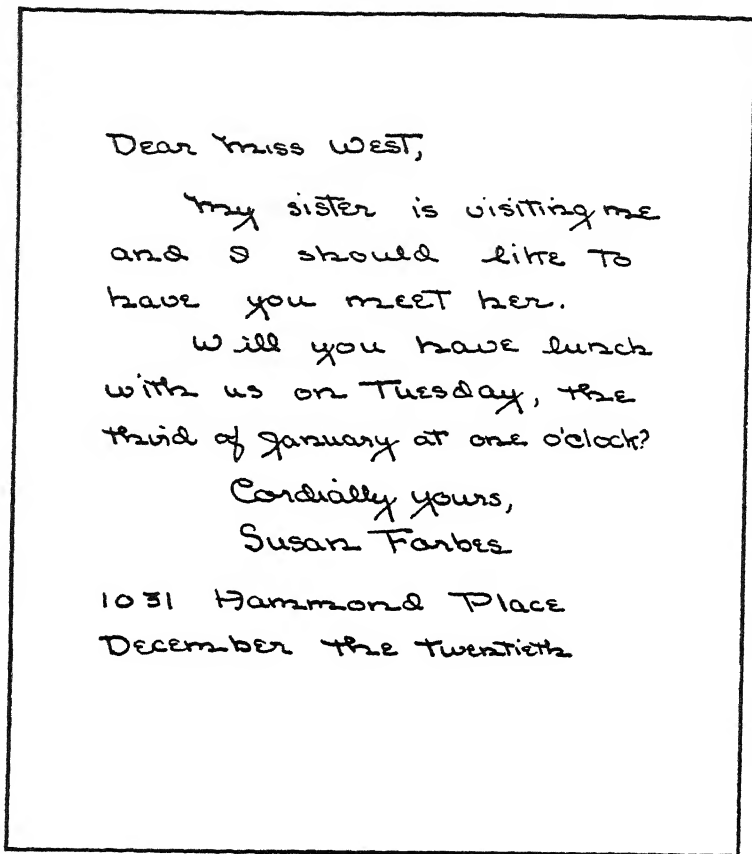 Dear Miss West,
My sister is visiting me
and I should like to
have you meet her.
Will you have lunch
with us on Tuesday, the
third of January at one o'clock?
Cordially yours,
Susan Forbes
1031 Hammond Place
December the twentieth